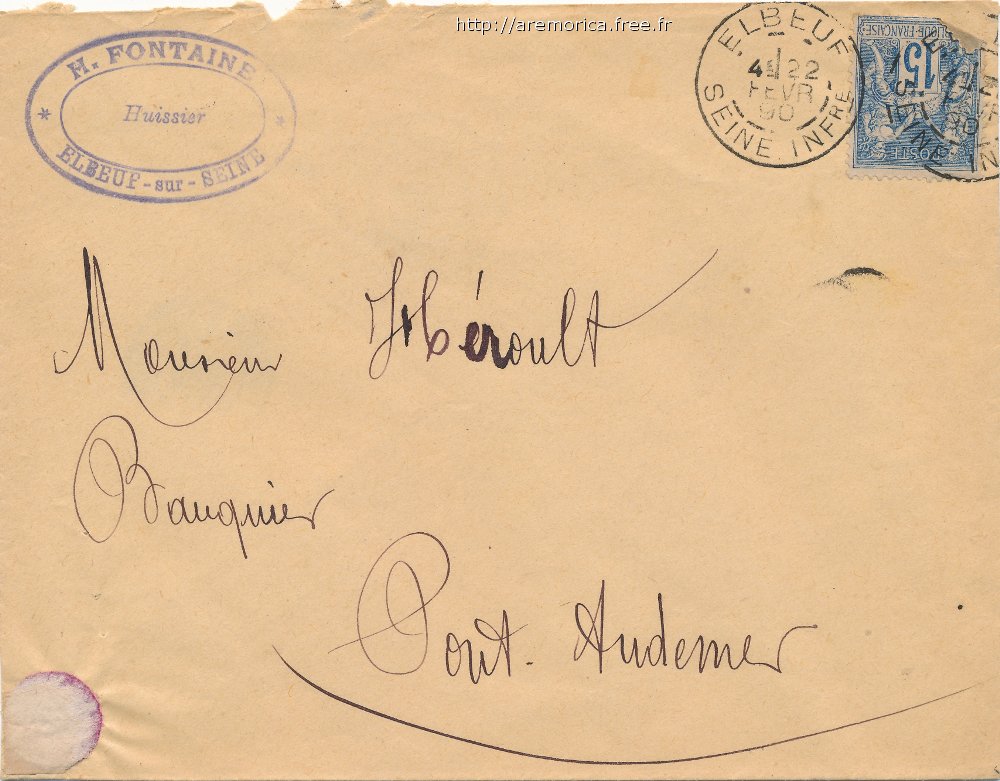 http://aremorica.free.fr
H. FONTAINE
Huissier
* ELBEUF-sur-SEINE *
ELBEUF
4E 22
FEVR
90
SEINE INFRE
15
POSTE
Monsieur Héroult
Banquier
Pont-Audemer